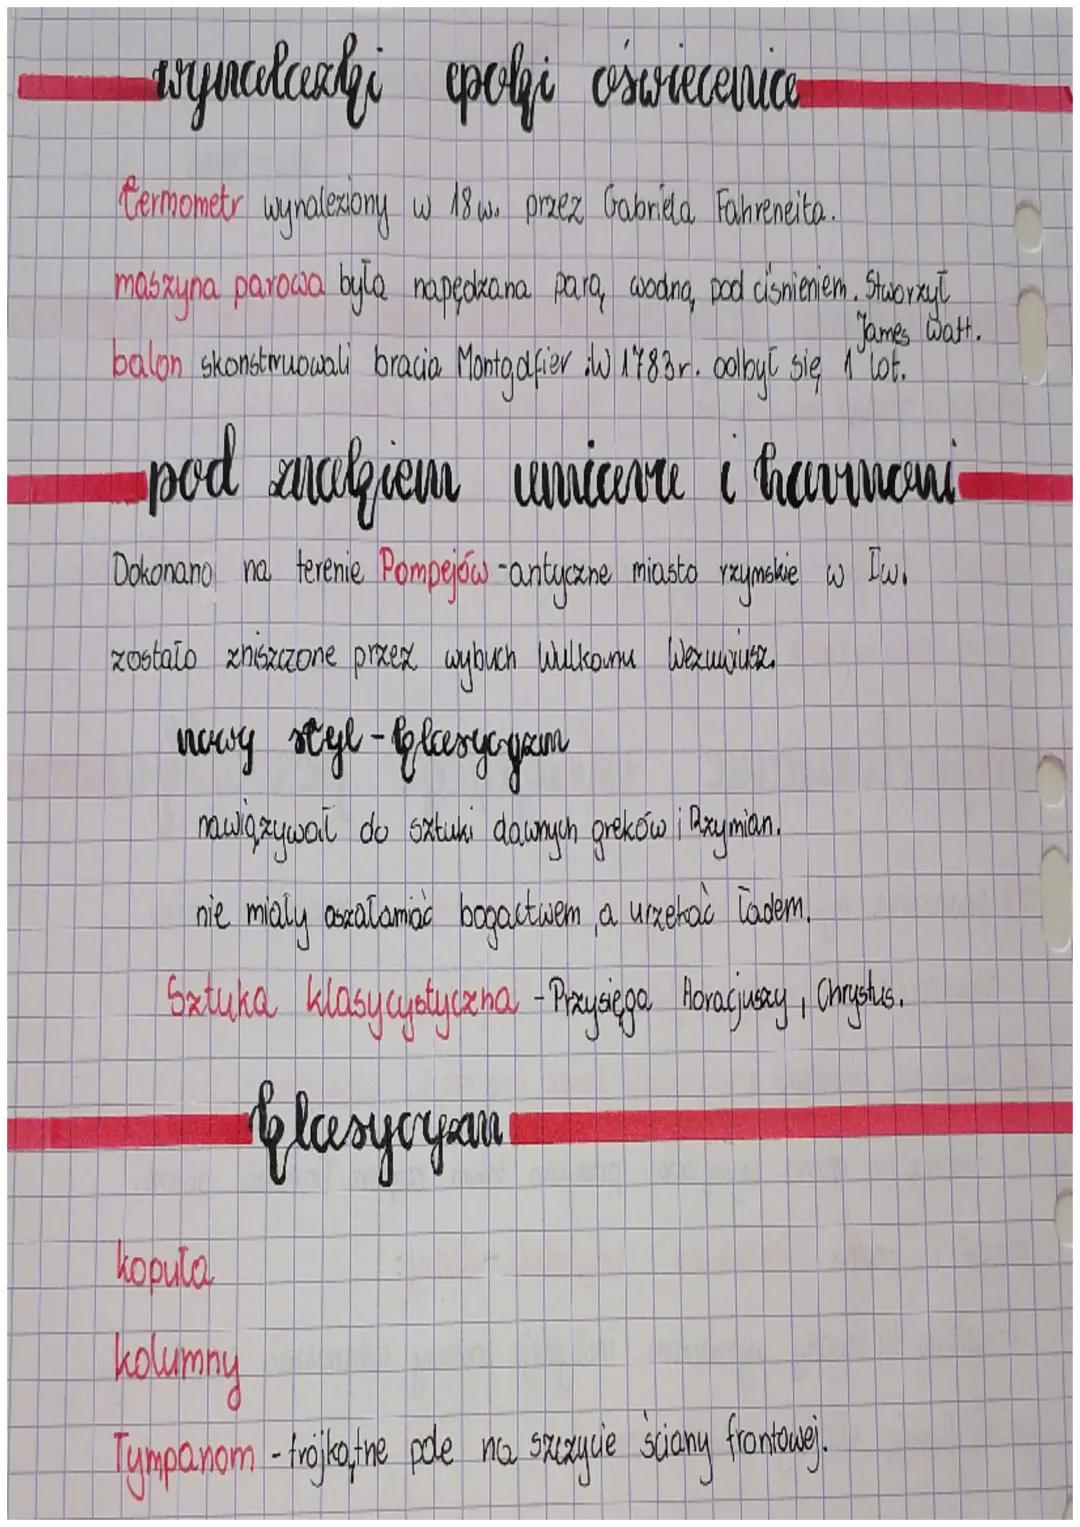 wynalazki epoki oświecenia
termometr wynaleziony w 18w. przez Gabriela Fahreneita.
maszyna parowa była napędzana parą wodną pod ciśnieniem. Stworzył
James Watt.
balon skonstruowali bracia Montgolfier i w 1783r. odbył się 1 lot.
pod znakiem umiaru i harmoni
Dokonano na terenie Pompejów - antyczne miasto rzymskie w I w.
zostało zniszczone przez wybuch Wulkanu Wezuwiusz.
nowy styl - klasycyzm
nawiązywał do sztuki dawnych greków i Rzymian.
nie miały oszałamiać bogactwem, a urzekać ładem.
Sztuka klasycystyczna - Przysięga Horacjuszy, Chrystus.
klasycyzm
kopuła
kolumny
Tympanom - trójkątne pole na szczycie ściany frontowej.